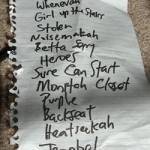 Whenevah
Girl up the Stairs
Stolen
Noisemakah
Betta Envy
Heroes
Sure Can Start
Monstah Closet
Purple
Backseat
Heatseekah